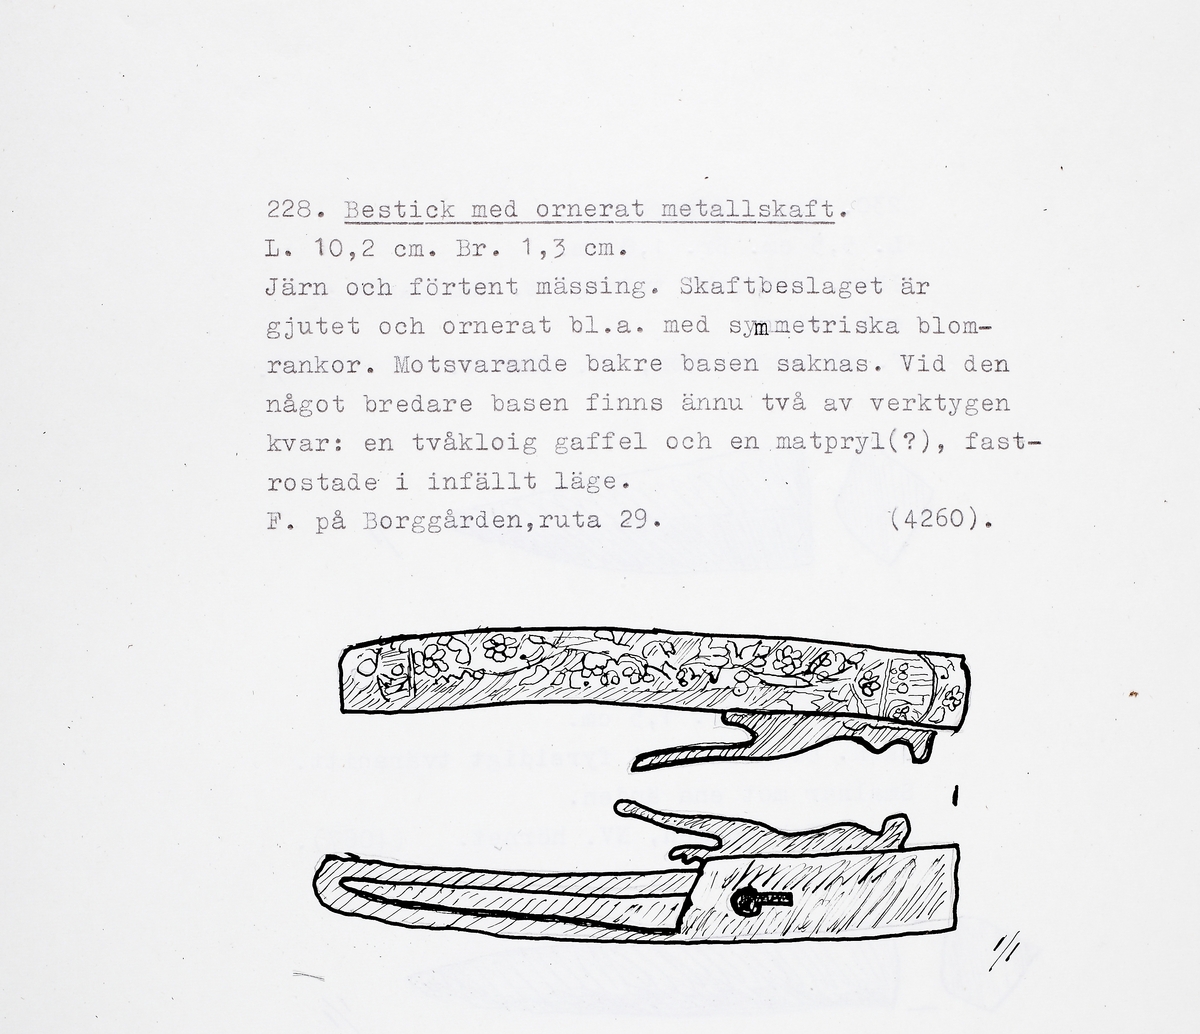 228. Bestick med ornerat metallskaft.
L. 10,2 cm. Br. 1,3 cm.
Järn och förtent mässing. Skaftbeslaget är
gjutet och ornerat bl.a. med symmetriska blom-
rankor. Motsvarande bakre basen saknas. Vid den
något bredare basen finns ännu två av verktygen
kvar: en tvåkloig gaffel och en matpryl(?), fast-
rostade i infällt läge.
F. på Borggården,ruta 29. (4260).
1/1